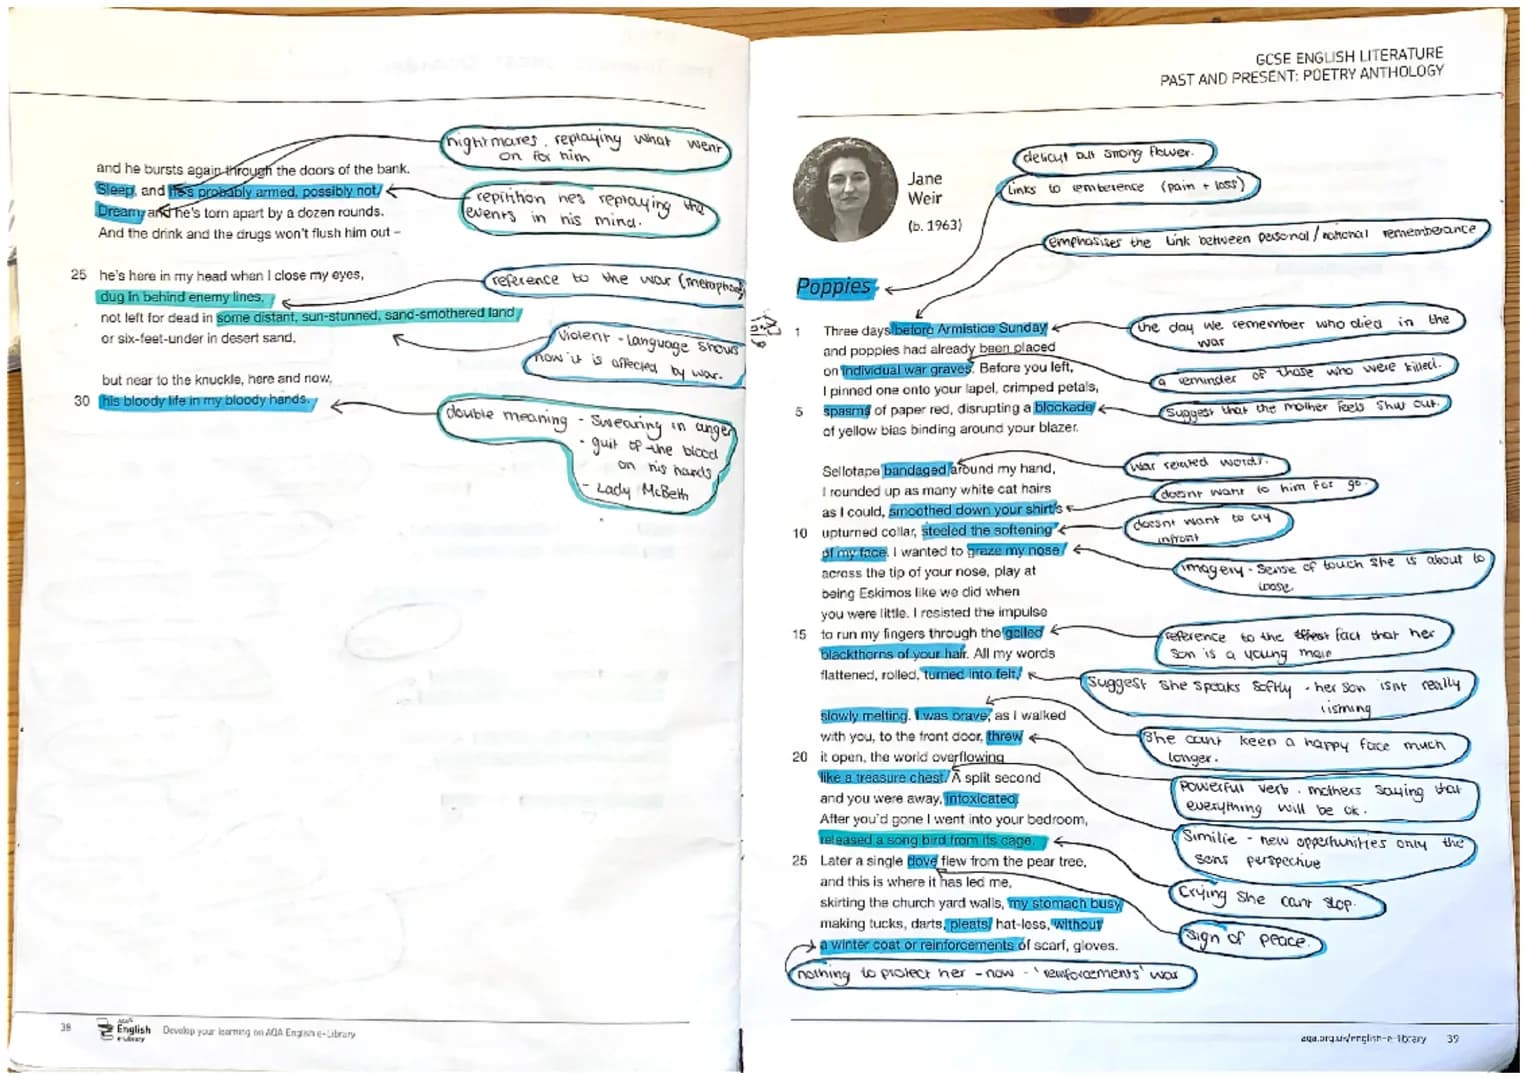 and he bursts again through the doors of the bank.
Sleep, and he's probably armed, possibly not.
Dream, and he's torn apart by a dozen rounds.
And the drink and the drugs won't flush him out –
25 he's here in my head when I close my eyes,
dug in behind enemy lines,
not left for dead in some distant, sun-stunned, sand-smothered land
or six-feet-under in desert sand,
but near to the knuckle, here and now,
30 his bloody life in my bloody hands.
nightmares, replaying what went
on for him
repitition hes replaying the
events in his mind.
reference to the war (metaphor)
Violent - language shows
how it is affected by war.
double meaning - Swearing in anger
- guit of the blood
on his hands
- Lady McBeth
38
AQA
English
e-Library
Develop your learning on AQA English e-Library
GCSE ENGLISH LITERATURE
PAST AND PRESENT: POETRY ANTHOLOGY
Jane
Weir
(b. 1963)
delicut but strong flower.
links to remberence (pain + loss)
emphasises the link between personal/national rememberance
Poppies
1 Three days before Armistice Sunday
and poppies had already been placed
on individual war graves. Before you left,
I pinned one onto your lapel, crimped petals,
5 spasms of paper red, disrupting a blockade
of yellow bias binding around your blazer.
Sellotape bandaged around my hand,
I rounded up as many white cat hairs
as I could, smoothed down your shirt's
10 upturned collar, steeled the softening
of my face. I wanted to graze my nose
across the tip of your nose, play at
being Eskimos like we did when
you were little. I resisted the impulse
15 to run my fingers through the gelled
blackthorns of your hair. All my words
flattened, rolled, turned into felt,
slowly melting. I was brave, as I walked
with you, to the front door, threw
20 it open, the world overflowing
like a treasure chest. A split second
and you were away, intoxicated.
After you'd gone I went into your bedroom,
released a song bird from its cage.
25 Later a single dove flew from the pear tree,
and this is where it has led me,
skirting the church yard walls, my stomach busy
making tucks, darts, pleats, hat-less, without
a winter coat or reinforcements of scarf, gloves.
the day we remember who died in the
war
a reminder of those who were killed.
Suggest that the mother feels shut out.
war related words.
doesnt want to him for go.
doesnt want to cry
infront
imagery - Sense of touch she is about to
loose.
reference to the fact that her
son is a young man
Suggest she speaks softly - her son isnt really
lisning
She cant keep a happy face much
longer.
Powerful verb. mothers saying that
everything will be ok.
Similie - new oppertunities only the
sons perspective
Crying she cant stop.
sign of peace.
nothing to protect her - now - 'reinforcements' war
aqa.org.uk/english-e-library 39